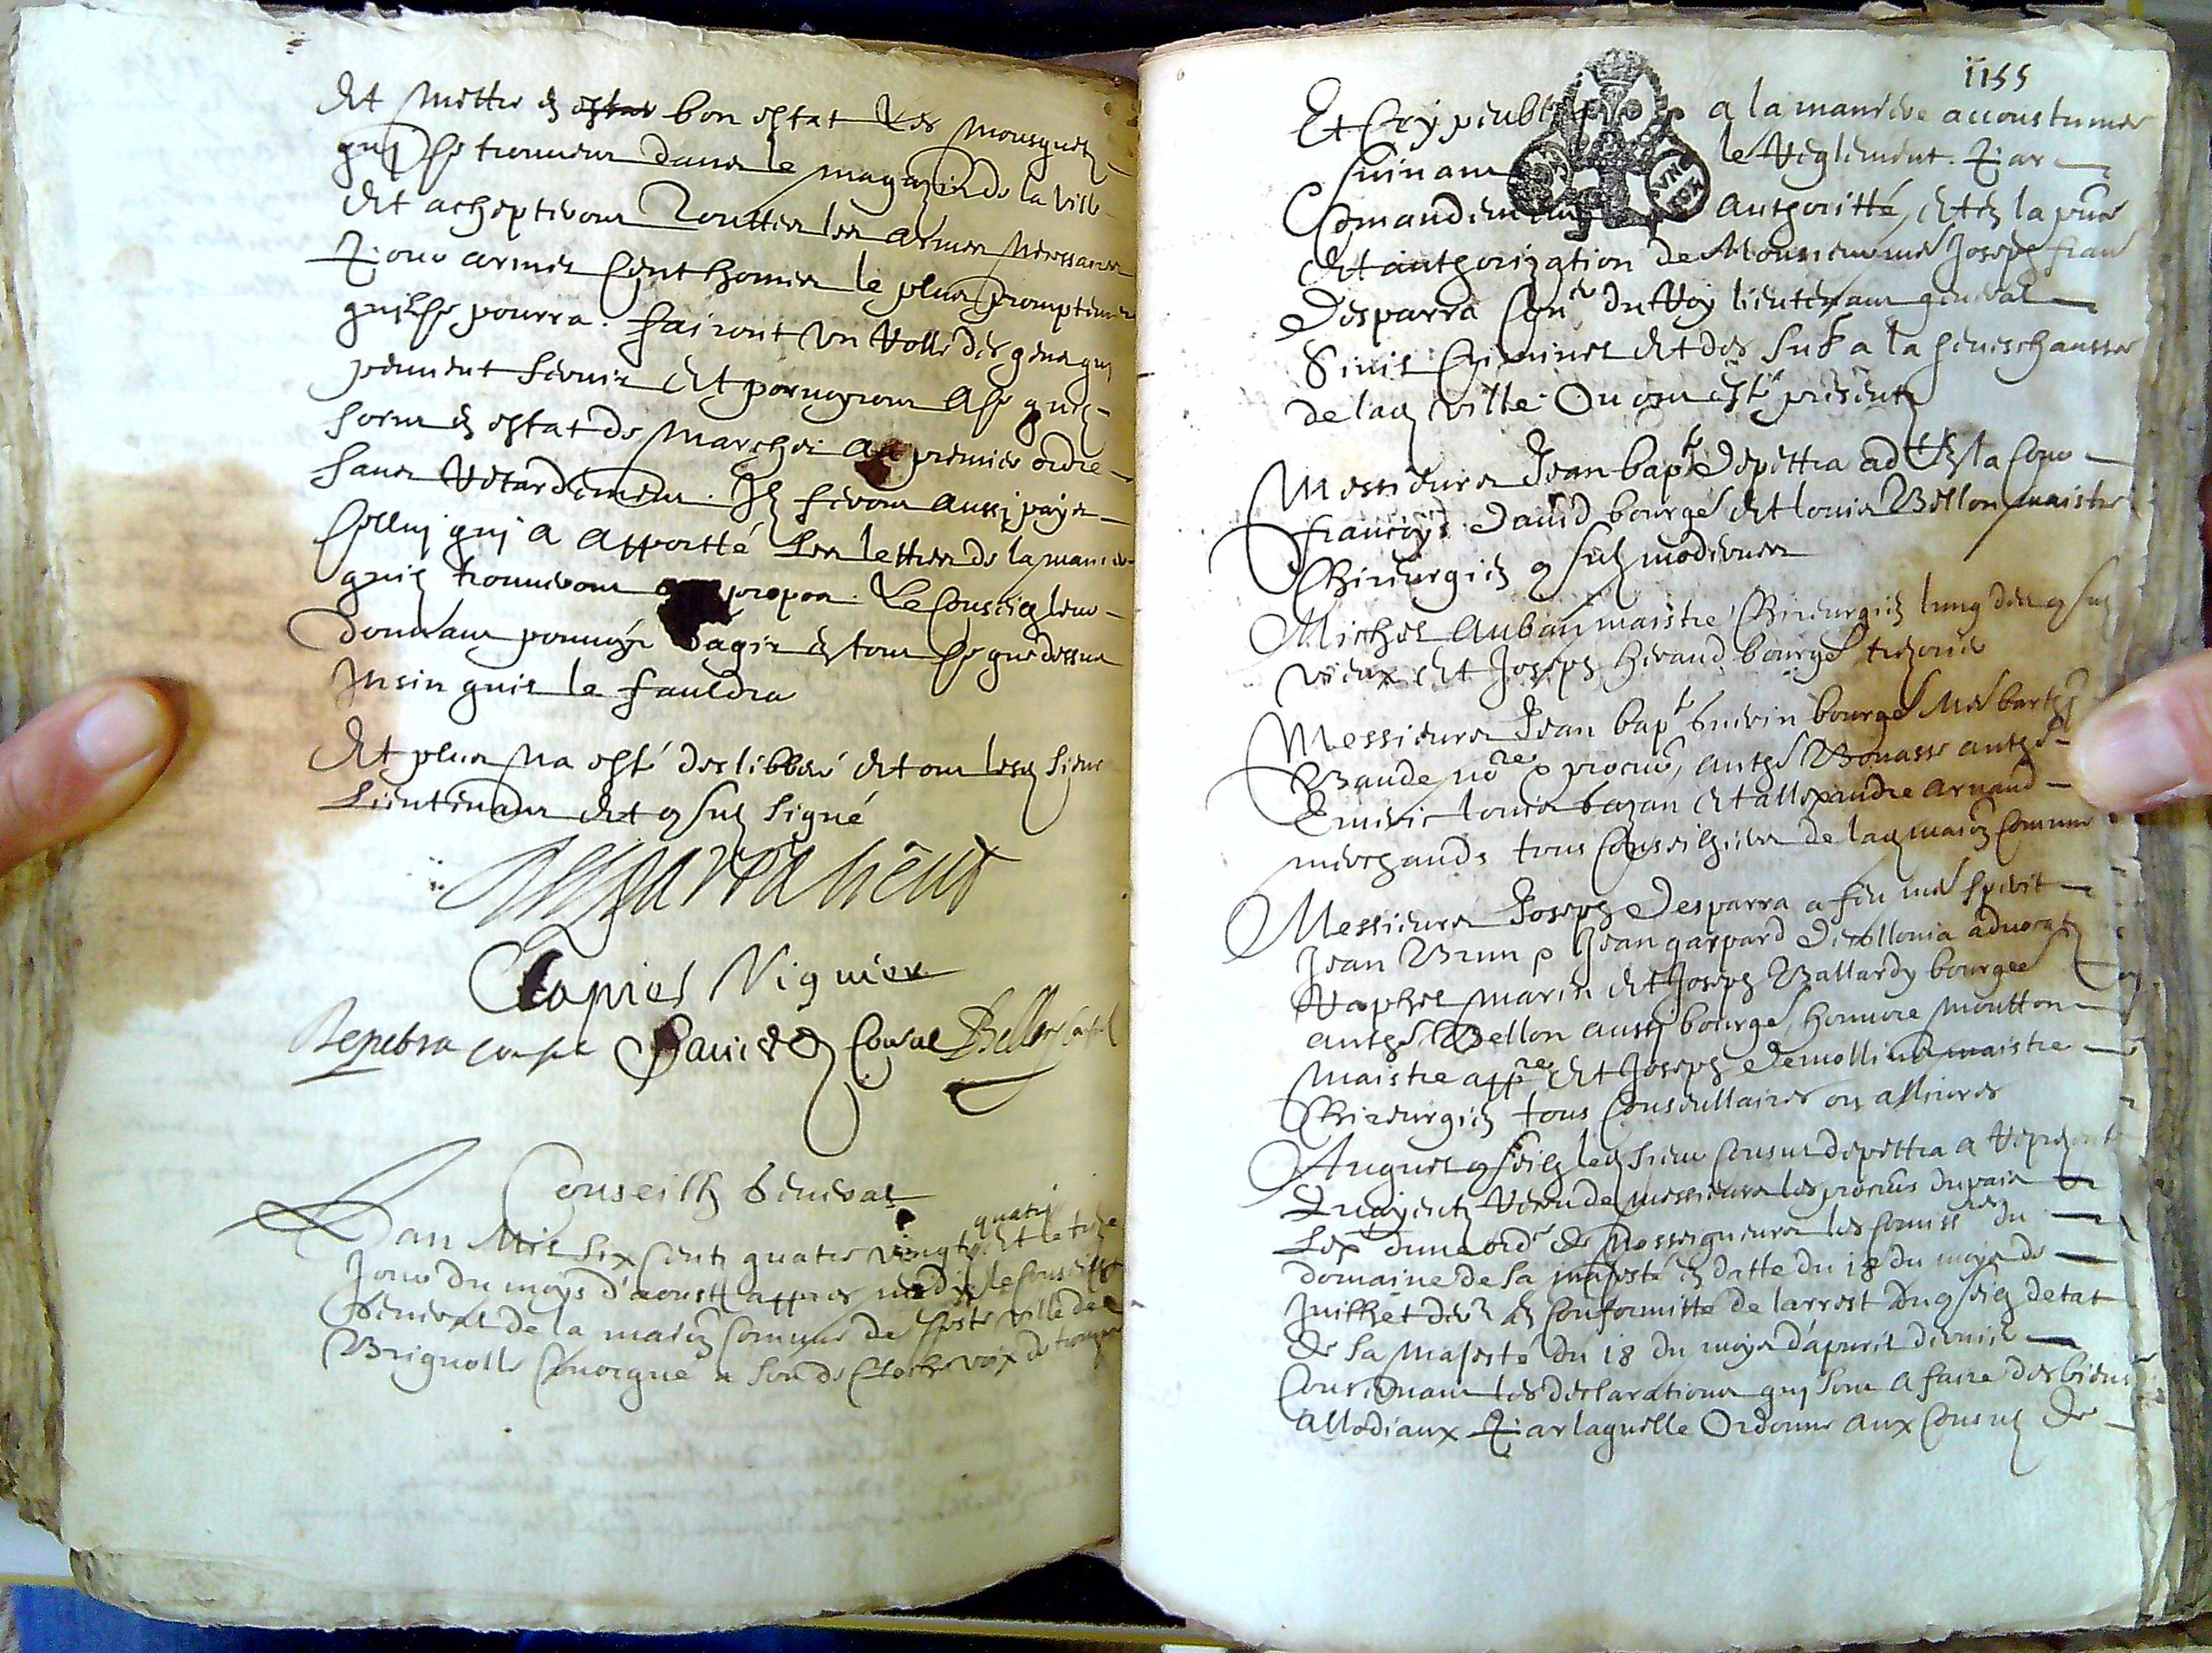 Et mettre en estat bon estat les mousquetz
quj se trouveur dans le magazin de la ville
Et achepteront touttes les armes necessaires
Pour armer cent homes le plus promptemen
quil se pourra. fairont un rolle des gens quj
peuvent servir Et pourvoyront a ce quilz
soint en estat de marcher au premier ordre
sans retardement. Ilz feront aussj payer
Celluj quj a apportté les lettres de la maniere
quilz trouveront a propos. Le Conseilh leur
donnant pouvoir dagir en tout ce que dessus
Insin quil le fauldra
Et plus na esté deslibberé et ont lesd sieurs
Lieutenant et consulz signé
Desparra lieut
Clapiers Viguier
Depetra consul David Consul Bellon Consul
Conseilh general
Lan mil six cents quatre vingts quatre Et le tze
Jour du moys d'aoust appres midy le Conseilh
General de la maison Comune de ceste ville de
Brignolle Convoqué a son de Cloche voix de trompe
1155
Et Cry public a la maniere accoustumée
suivant le Reglement. Par
Comandement authoritté, et en la pnce
Et authorization de Monsieur me Joseph fran
Desparra coner du Roy lieutenant general
Civil Criminel et des sub a la seneschaussée
de lad ville. Ou ont esté presents
Messieurs Jean bapte Depettra adt en la Cour
françois David bourge et louis Bellon maistre
Chirurgien consulz modernes
Michel Auban maistre Chirurgien lung des consulz
vieux Et Joseph heraud bourge trezorier
Messieurs Jean bapt guerin bourge Me barthy
Baude nore & procur, anthe Bonasse anthe
Emeric louis bazan Et allexandre arnaud
merchands tous Conseilhers de lad maison Comune
Messieurs Joseph Desparra a feu me sperit
Jean Brun & Jean gaspard de collonia advocats
Raphel marin Et Joseph Ballardy bourges
anthe Bellon aussj bourge, honnore moutton
maistre appre Et Joseph Demollins maistre
Chirurgien tous Consullaires ou alliures
Auquel conseilh led sieur Consul depettra a represente
quayent receu de messieurs les procurs du pais
Lex dune ordce de Nosseigneurs les Comissres du
domaine de sa majesté en datte du 18 du moys de
Juilhet der en Conformitté de larrest du conseilh detat
de sa Majesté du 18 du moys d'apvril dernier
Concernant les desclarations quj sont a faire des biens
allodiaux Par laquelle Ordonne aux Consulz de